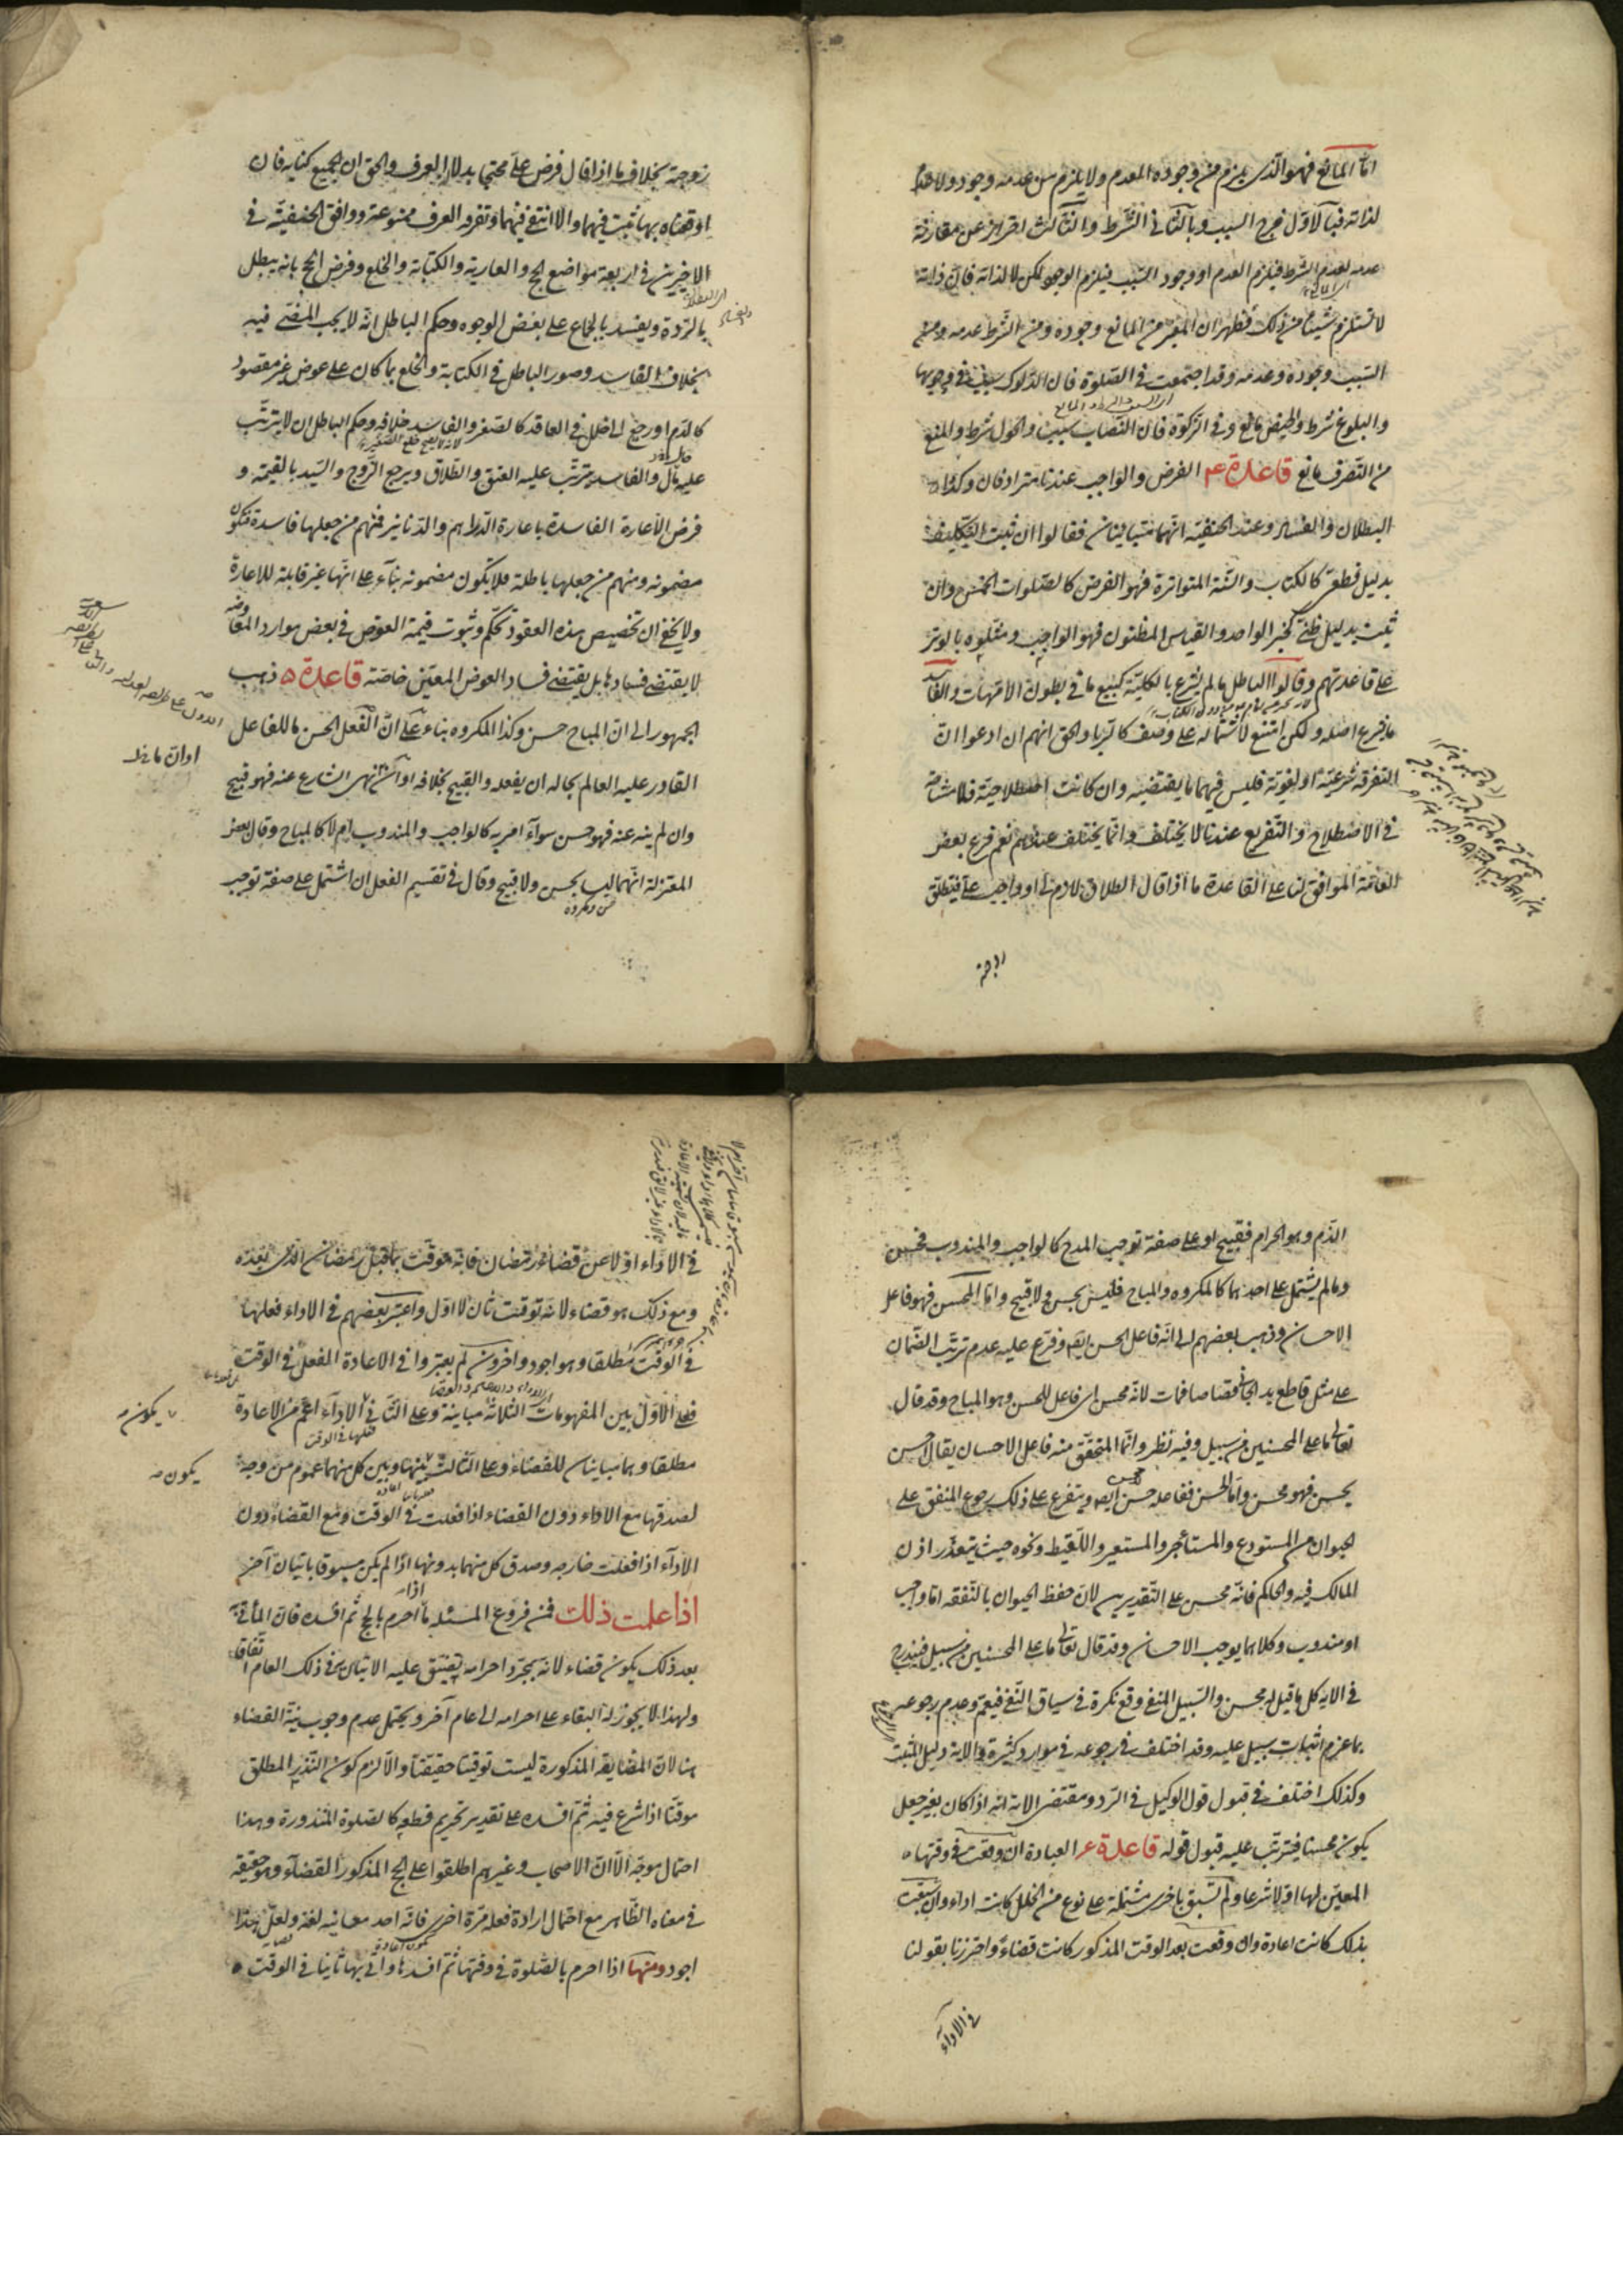 امّا المانع فهو الّذى يلزم من وجوده العدم ولا يلزم من عدمه وجود ولا عدم
لذاته فبالاوّل خرج السبب وبالثانى الشرط والثالث احتراز عن مقارنة
عدمه لعدم الشرط فيلزم العدم او وجود السبب فيلزم الوجود لكن لا لذاته فان ذاته
لا تستلزم شيئا من ذلك فظهر ان المعتبر من المانع وجوده ومن الشرط عدمه ومن
السبب وجوده وعدمه وقد اجتمعت فى الصلوة فان الدلوك سبب فى وجوبها
والبلوغ شرط والحيض مانع وفى الزكوة فان النصاب سبب والحول شرط والمنع
من التصرف مانع قاعدة ٤ الفرض والواجب عندنا مترادفان وكذا
البطلان والفساد وعند الحنفيّة انهما متباينان فقالوا ان ثبت التكليف
بدليل قطعى كالكتاب والسّنة المتواترة فهو الفرض كالصلوات الخمس وان
ثبت بدليل ظنّى كخبر الواحد والقياس المظنون فهو الواجب ومثلوه بالوتر
على قاعدتهم وقالوا الباطل ما لم يشرع بالكلية كبيع ما فى بطون الامّهات والفاسد
ما شرع اصله ولكن امتنع لاشتماله على وصف كالربا والحق انهم ان ادعوا ان
التفرقة شرعيّة او لغويّة فليس فيهما ما يقتضيه وان كانت اصطلاحيّة فلا مشاحة
فى الاصطلاح والتفريع عندنا لا يختلف وانّما يختلف عندهم نعم فرع بعض
العامّة الموافق لنا على القاعدة ما اذا قال الطلاق لازم لى او واجب علىّ فتطلق
زوجته
زوجته بخلاف ما اذا قال فرض علىّ محتجا بدلالة العرف والحق ان الجميع كناية فان
اوقعناه بها ثبت فيهما والا انتفى فيهما وتفرقه العرف ممنوعة ووافق الحنفيّة فى
الاخيرين فى اربعة مواضع الحج والعارية والكتابة والخلع وفرض الحج بانه يبطل
بالردّة ويفسد بالجماع على بعض الوجوه وحكم الباطل انّه لا يجب المضىّ فيه
بخلاف الفاسد وصور الباطل فى الكتابة والخلع بما كان على عوض غير مقصود
كالدّم او رجع الى خلل فى العاقد كالصغر والفاسد خلافه وحكم الباطل ان لا يترتّب
عليه مال والفاسد يترتّب عليه العتق والطلاق ويرجع الزوج والسّيد بالقيمة و
فرض الاعارة الفاسدة باعارة الدراهم والدّنانير فمنهم من جعلها فاسدة فتكون
مضمونة ومنهم من جعلها باطلة فلا يكون مضمونه بناء على انها غير قابلة للاعارة
ولا يخفى ان تخصيص هذه العقود تحكّم وثبوت قيمة العوض فى بعض موارد المعاوضة
لا يقتضى فسادها بل يقتضى فساد العوض المعيّن خاصّة قاعدة ٥ ذهب
الجمهور الى ان المباح حسن وكذا المكروه بناء على انّ الفعل الحسن ما للفاعل
القادر عليه العالم بحاله ان يفعله والقبيح بخلافه او ان ما نهى الشارع عنه فهو قبيح
وان لم ينه عنه فهو حسن سواء امر به كالواجب والمندوب ام لا كالمباح وقال بعض
المعتزلة انهما ليسا بحسن ولا قبيح وقال فى تقسيم الفعل ان اشتمل على صفة توجب
او ان ما نهى
الذّم وهو الحرام فقبيح او على صفة توجب المدح كالواجب والمندوب فحسن
وما لم يشتمل على احدهما كالمكروه والمباح فليس بحسن ولا قبيح وامّا المحسن فهو فاعل
الاحسان وذهب بعضهم الى انّه فاعل الحسن ايضا وفرّع عليه عدم ترتّب الضمان
على مثل قاطع يد الجانى قصاصا فمات لانّه محسن اى فاعل للحسن وهو المباح وقد قال
تعالى ما على المحسنين من سبيل وفيه نظر وانّما المتحقّق منه فاعل الاحسان يقال احسن
يحسن فهو محسن وامّا الحسن ففاعله حسن ايضا ويتفرع على ذلك رجوع المنفق على
الحيوان من المستودع والمستأجر والمستعير والملتقط ونحوه حيث يتعذّر اذن
المالك فيه والحاكم فانّه محسن على التقديرين لان حفظ الحيوان بالنّفقه امّا واجب
او مندوب وكلاهما يوجب الاحسان وقد قال تعالى ما على المحسنين من سبيل فيندرج
فى الاية كل ما قيل له محسن والسّبيل المنفى وقع نكرة فى سياق النّفى فيعمّ وعدم رجوعه
بما غرم اثبات سبيل عليه وقد اختلف فى رجوعه فى موارد كثيرة والاية دليل المثبت
وكذلك اختلف فى قبول قول الوكيل فى الرّد ومقتضى الاية انّه اذا كان بغير جعل
يكون محسنا فيترتّب عليه قبول قوله قاعدة ٦ العبادة ان وقعت فى وقتها
المعيّن لها اوّلا شرعا ولم تسبق باخرى مشتملة على نوع من الخلل كانت اداء وان سبقت
بذلك كانت اعادة وان وقعت بعد الوقت المذكور كانت قضاء واحترزنا بقولنا
فى الاداء
فى الاداء اوّلا عن قضاء رمضان فانّه موقّت بما قبل رمضان الّذى بعده
ومع ذلك هو قضاء لانّه توقيت ثان لا اوّل واعتبر بعضهم فى الاداء فعلها
فى الوقت مطلقا وهو اجود واخرون لم يعتبروا فى الاعادة الفعل فى الوقت
فعلى الاوّل بين المفهومات الثلاثة مباينة وعلى الثّانى الاداء اعمّ من الاعادة
مطلقا وهما مباينان للقضاء وعلى الثالث بينها وبين كل منهما عموم من وجه
لصدقها مع الاداء دون القضاء اذا فعلت فى الوقت ومع القضاء دون
الاداء اذا فعلت خارجه وصدق كل منهما بدونها اذا لم يكن مسبوقا باتيان آخر
اذا علمت ذلك فمن فروع المسئلة ما اذا احرم بالحج ثم افسده فانّ المأتىّ به
بعد ذلك يكون قضاء لانّه بمجرد احرامه تضيّق عليه الاتيان به فى ذلك العام اتفاقا
ولهذا لا يجوز له البقاء على احرامه الى عام آخر ويحتمل عدم وجوب نيّة القضاء
هنا لانّ المضايقة المذكورة ليست توقيتا حقيقيّا والّا لزم كون النّذر المطلق
موقّتا اذا شرع فيه ثم افسده على تقدير تحريم قطعه كالصلوة المنذورة وهذا
احتمال موجّه الّا انّ الاصحاب وغيرهم اطلقوا على الحج المذكور القضاء وهو حقيقة
فى معناه الظّاهر مع احتمال ارادة فعله مرّة اخرى فانّه احد معانيه لغة ولعلّ هذا
اجود ومنها اذا احرم بالصّلوة فى وقتها ثم افسدها واتى بها ثانيا فى الوقت
يكون
يكون